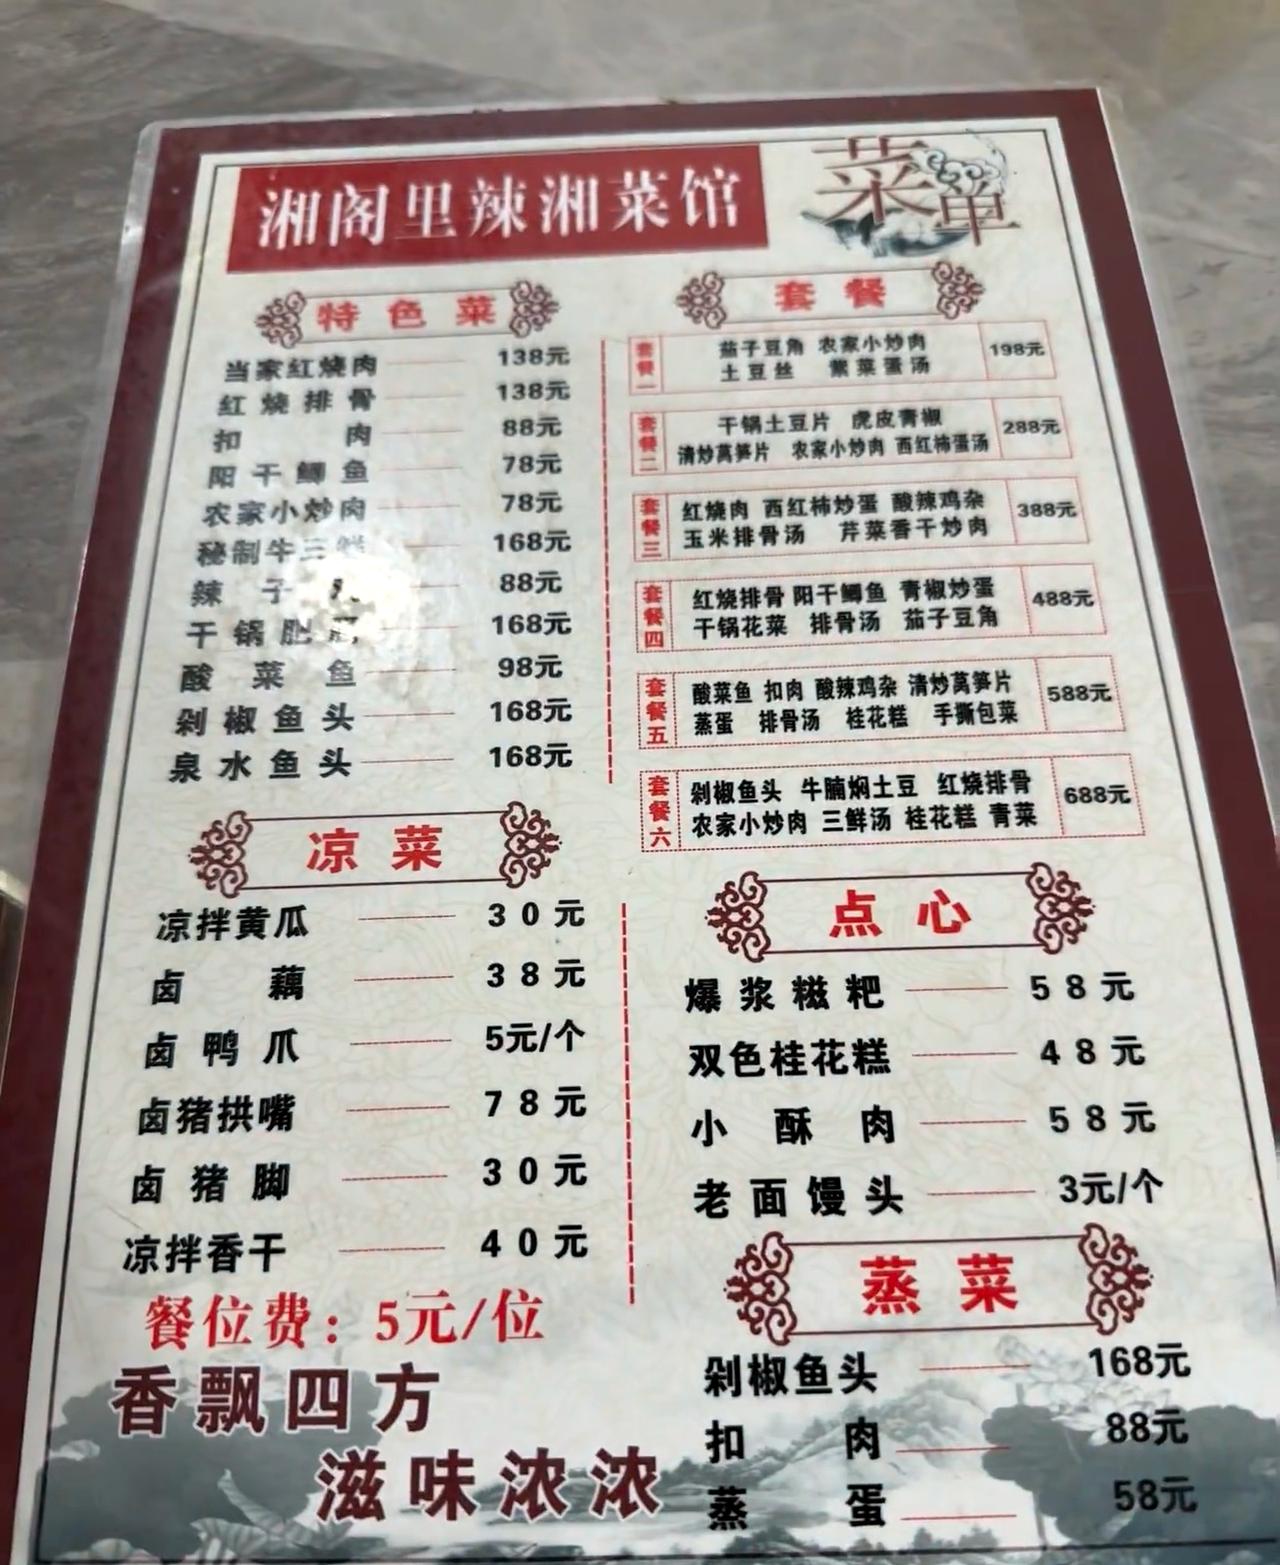 湘阁里辣湘菜馆
菜单
特色菜
当家红烧肉 138元
红烧排骨 138元
扣肉 88元
阳干鲫鱼 78元
农家小炒肉 78元
秘制牛三鲜 168元
辣子 88元
干锅肥肠 168元
酸菜鱼 98元
剁椒鱼头 168元
泉水鱼头 168元
套餐
套餐一 茄子豆角 农家小炒肉 198元
土豆丝 紫菜蛋汤
套餐二 干锅土豆片 虎皮青椒 288元
清炒莴笋片 农家小炒肉 西红柿蛋汤
套餐三 红烧肉 西红柿炒蛋 酸辣鸡杂 388元
玉米排骨汤 芹菜香干炒肉
套餐四 红烧排骨 阳干鲫鱼 青椒炒蛋 488元
干锅花菜 排骨汤 茄子豆角
套餐五 酸菜鱼 扣肉 酸辣鸡杂 清炒莴笋片 588元
蒸蛋 排骨汤 桂花糕 手撕包菜
套餐六 剁椒鱼头 牛腩焖土豆 红烧排骨 688元
农家小炒肉 三鲜汤 桂花糕 青菜
凉菜
凉拌黄瓜 30元
卤藕 38元
卤鸭爪 5元/个
卤猪拱嘴 78元
卤猪脚 30元
凉拌香干 40元
餐位费：5元/位
香飘四方
滋味浓浓
点心
爆浆糍粑 58元
双色桂花糕 48元
小酥肉 58元
老面馒头 3元/个
蒸菜
剁椒鱼头 168元
扣肉 88元
蒸蛋 58元